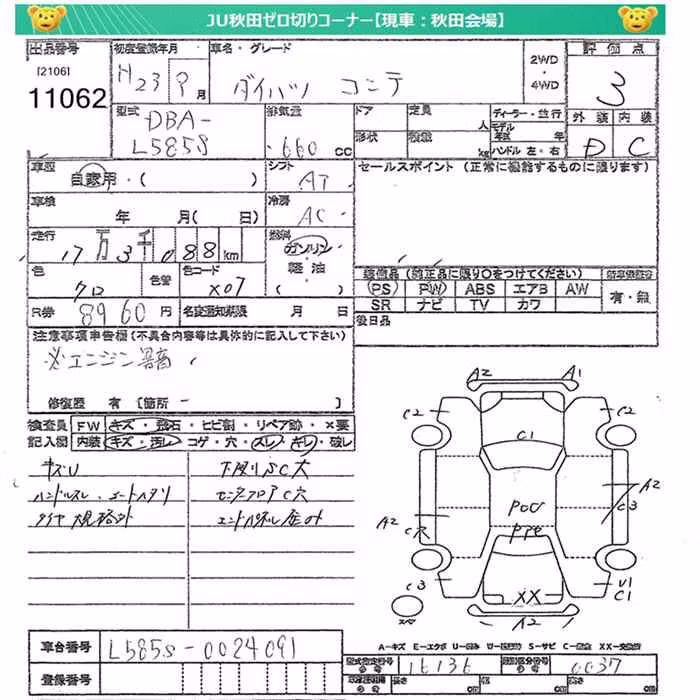 JU秋田ゼロ切りコーナー【現車：秋田会場】
出品番号
[2106]
11062
初度登録年月
H23 9月
車名・グレード
ダイハツ コンテ
2WD・4WD
評価点
3
外装 内装
D C
型式
DBA-
L585S
排気量
660 cc
ドア
定員
人
形状
積量
kg
ディーラー・並行
モデル年式 年
ハンドル 左・右
車歴
自家用・( )
シフト
AT
セールスポイント (正常に機能するものに限ります)
車検
年 月( 日)
冷房
AC
走行
17万3千088km
燃料
ガソリン
軽油
( )
色
クロ
色替
色コード
X07
装備品 (純正品に限り○をつけてください)
PS PW ABS エアB AW
SR ナビ TV カワ
有・無
R券
8960円
名変通知期限 月 日
後日品
注意事項申告欄(不具合内容等は具体的に記入して下さい)
修復歴 有 [箇所 - ]
検査員記入図
FW キズ・飛石・ヒビ割・リペア跡・×要
内装 キズ・汚れ・コゲ・穴・スレ・キレ・破レ
キズU
下廻りSC大
ハンドルスレ、
センターフロアC穴
タイヤ規格外
A2 A1
C2 C2
C1
A2
C3
A2
C穴
C3
XX
U1
C1
A2
スペア
車台番号
L585S-0024091
登録番号
A-キズ E-エクボ
S-サビ
型式指定番号
16136
類別区分番号
0037
長さ cm 幅 cm 高さ cm